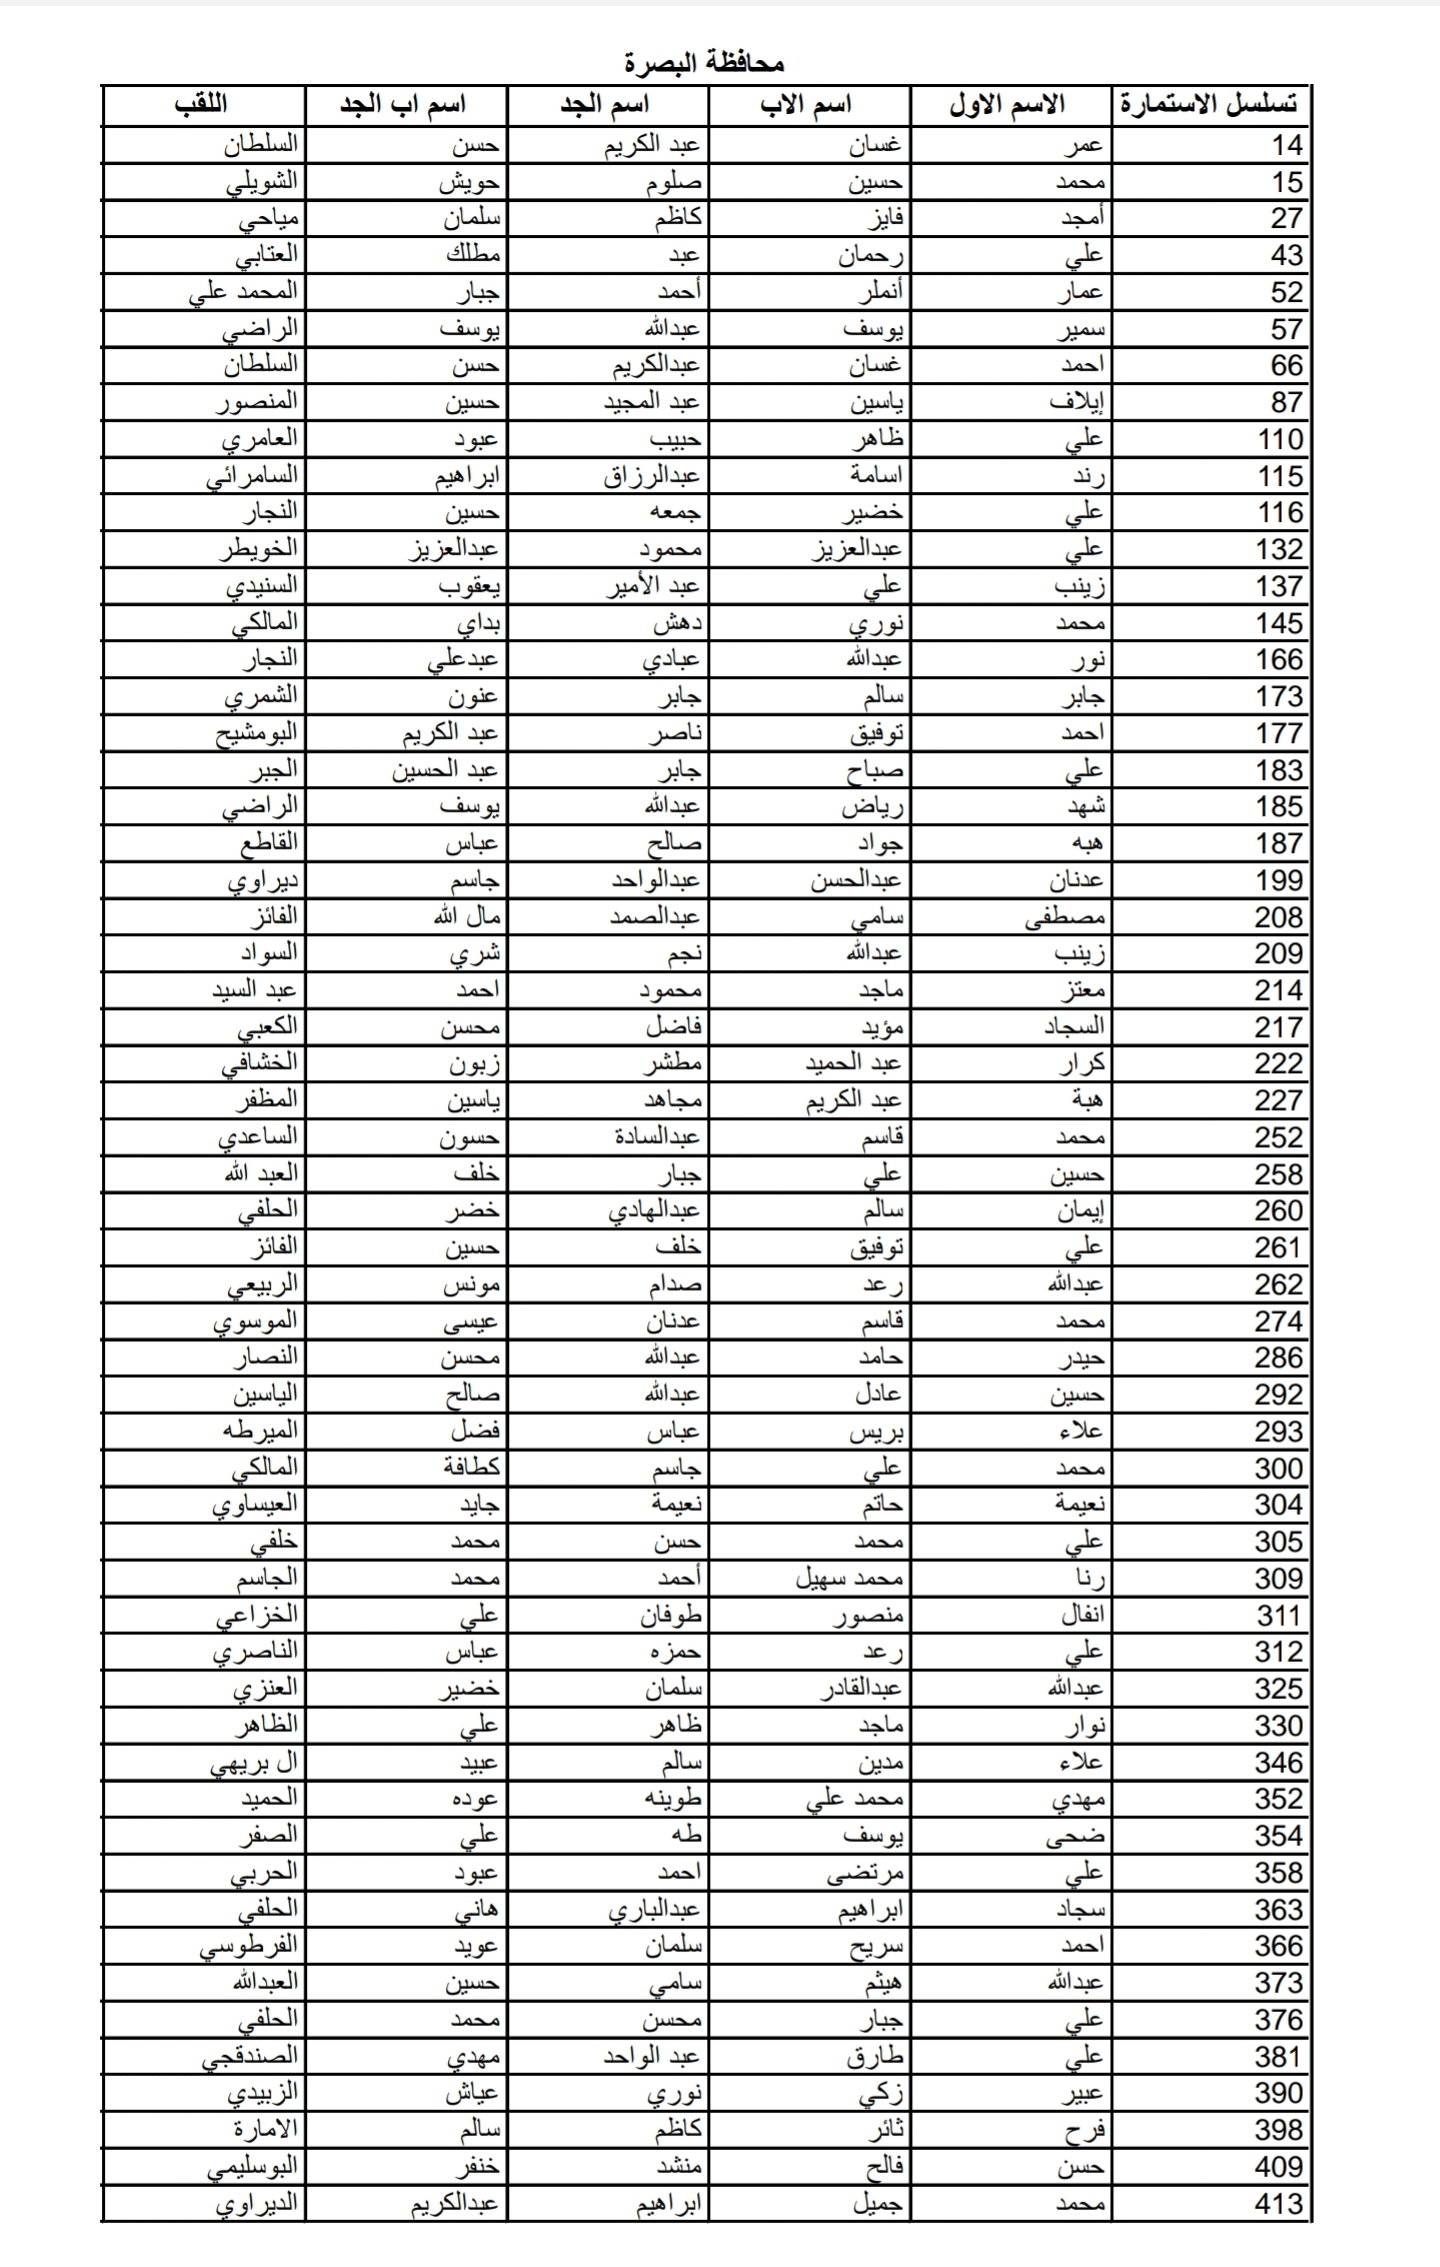 محافظة البصرة
تسلسل الاستمارة الاسم الاول اسم الاب اسم الجد اسم اب الجد اللقب
14 عمر غسان عبد الكريم حسن السلطان
15 محمد حسين صلوم حويش الشويلي
27 أمجد فايز كاظم سلمان مياحي
43 علي رحمان عبد مطلك العتابي
52 عمار أنملر أحمد جبار المحمد علي
57 سمير يوسف عبدالله يوسف الراضي
66 احمد غسان عبدالكريم حسن السلطان
87 إيلاف ياسين عبد المجيد حسين المنصور
110 علي ظاهر حبيب عبود العامري
115 رند اسامة عبدالرزاق ابراهيم السامرائي
116 علي خضير جمعه حسين النجار
132 علي عبدالعزيز محمود عبدالعزيز الخويطر
137 زينب علي عبد الأمير يعقوب السنيدي
145 محمد نوري دهش بداي المالكي
166 نور عبدالله عبادي عبدعلي النجار
173 جابر سالم جابر عنون الشمري
177 احمد توفيق ناصر عبد الكريم البومشيح
183 علي صباح جابر عبد الحسين الجبر
185 شهد رياض عبدالله يوسف الراضي
187 هبه جواد صالح عباس القاطع
199 عدنان عبدالحسن عبدالواحد جاسم ديراوي
208 مصطفى سامي عبدالصمد مال الله الفائز
209 زينب عبدالله نجم شري السواد
214 معتز ماجد محمود احمد عبد السيد
217 السجاد مؤيد فاضل محسن الكعبي
222 كرار عبد الحميد مطشر زبون الخشافي
227 هبة عبد الكريم مجاهد ياسين المظفر
252 محمد قاسم عبدالسادة حسون الساعدي
258 حسين علي جبار خلف العبد الله
260 إيمان سالم عبدالهادي خضر الحلفي
261 علي توفيق خلف حسين الفائز
262 عبدالله رعد صدام مونس الربيعي
274 محمد قاسم عدنان عيسى الموسوي
286 حيدر حامد عبدالله محسن النصار
292 حسين عادل عبدالله صالح الياسين
293 علاء بريس عباس فضل الميرطه
300 محمد علي جاسم كطافة المالكي
304 نعيمة حاتم نعيمة جايد العيساوي
305 علي محمد حسن محمد خلفي
309 رنا محمد سهيل أحمد محمد الجاسم
311 انفال منصور طوفان علي الخزاعي
312 علي رعد حمزه عباس الناصري
325 عبدالله عبدالقادر سلمان خضير العنزي
330 نوار ماجد ظاهر علي الظاهر
346 علاء مدين سالم عبيد ال بريهي
352 مهدي محمد علي طوينه عوده الحميد
354 ضحى يوسف طه علي الصفر
358 علي مرتضى احمد عبود الحربي
363 سجاد ابراهيم عبدالباري هاني الحلفي
366 احمد سريح سلمان عويد الفرطوسي
373 عبدالله هيثم سامي حسين العبدالله
376 علي جبار محسن محمد الحلفي
381 علي طارق عبد الواحد مهدي الصندقجي
390 عبير زكي نوري عياش الزبيدي
398 فرح ثائر كاظم سالم الامارة
409 حسن فالح منشد خنفر البوسليمي
413 محمد جميل ابراهيم عبدالكريم الديراوي